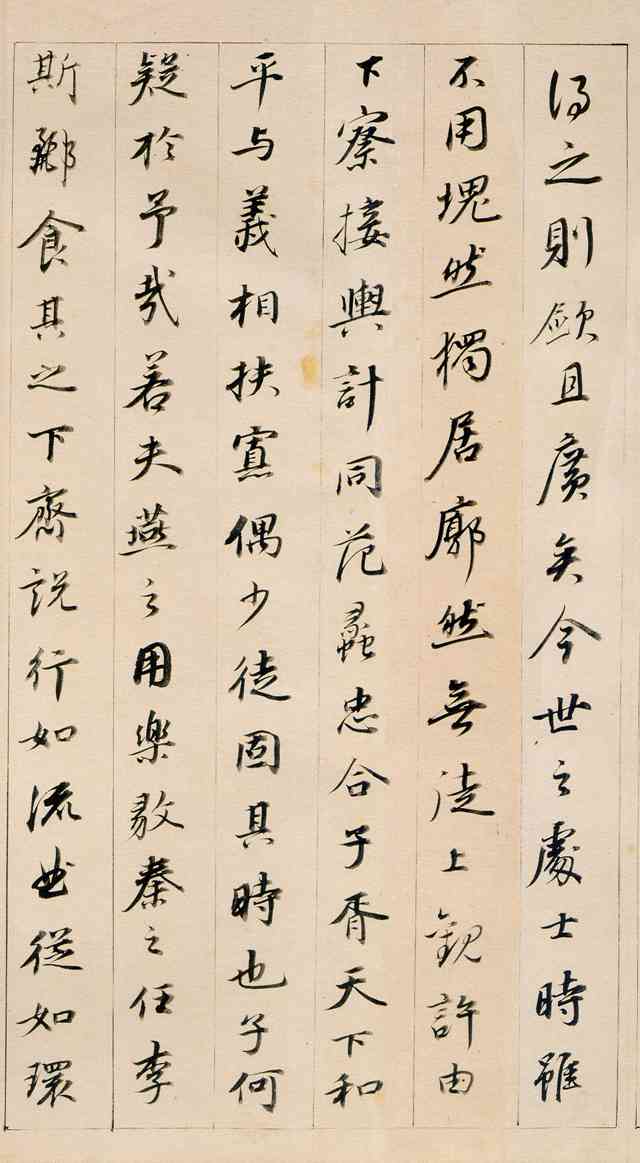 得之則歛且廣矣今世之處士時雖
不用塊然獨居廓然無徒上觀許由
下察接輿計同范蠡忠合子胥天下和
平与義相扶寡偶少徒固其時也子何
疑於予哉若夫燕之用樂毅秦之任李
斯酈食其之下齊説行如流曲從如環